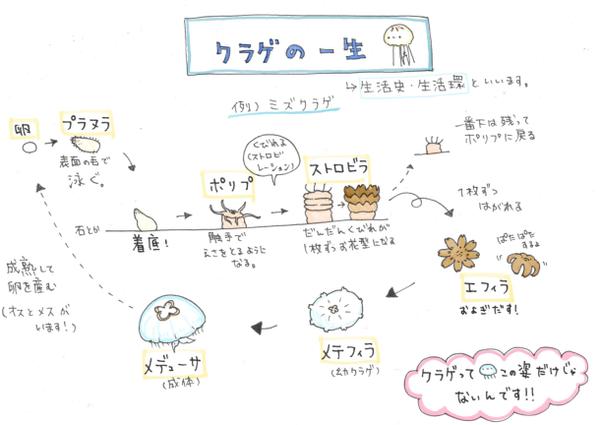 クラゲの一生
↳生活史・生活環といいます。
例）ミズクラゲ
卵
プラヌラ
表面の毛で
泳ぐ。
石とか
着底！
ポリプ
触手で
えさをとるように
なる。
くびれる
（ストロビ
レーション）
ストロビラ
だんだんくびれが
1枚ずつお花型になる
一番下は残って
ポリプに戻る
1枚ずつ
はがれる
ぱたぱた
するよ
エフィラ
およぎだす！
メテフィラ
（幼クラゲ）
メデューサ
（成体）
成熟して
卵を産む
（オスとメスが
います！）
クラゲって この姿だけじゃ
ないんです!!